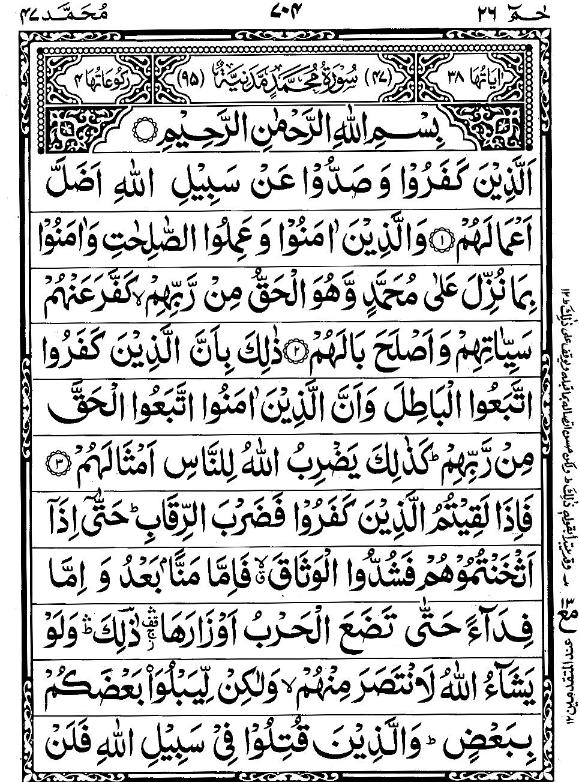 حٰمٓ ٢٦ ٧٠٤ مُحَمَّد ٤٧
اٰيَاتُهَا ٣٨ (٤٧) سُوْرَةُ مُحَمَّدٍ مَّدَنِيَّةٌ (٩٥) رُكُوْعَاتُهَا ٤
بِسْمِ اللّٰهِ الرَّحْمٰنِ الرَّحِيْمِ
اَلَّذِيْنَ كَفَرُوْا وَ صَدُّوْا عَنْ سَبِيْلِ اللّٰهِ اَضَلَّ
اَعْمَالَهُمْ ۝١ وَالَّذِيْنَ اٰمَنُوْا وَ عَمِلُوا الصّٰلِحٰتِ وَاٰمَنُوْا
بِمَا نُزِّلَ عَلٰى مُحَمَّدٍ وَّهُوَ الْحَقُّ مِنْ رَّبِّهِمْ ۙ كَفَّرَ عَنْهُمْ
سَيِّاٰتِهِمْ وَ اَصْلَحَ بَالَهُمْ ۝٢ ذٰلِكَ بِاَنَّ الَّذِيْنَ كَفَرُوا
اتَّبَعُوا الْبَاطِلَ وَاَنَّ الَّذِيْنَ اٰمَنُوا اتَّبَعُوا الْحَقَّ
مِنْ رَّبِّهِمْ ؕ كَذٰلِكَ يَضْرِبُ اللّٰهُ لِلنَّاسِ اَمْثَالَهُمْ ۝٣
فَاِذَا لَقِيْتُمُ الَّذِيْنَ كَفَرُوْا فَضَرْبَ الرِّقَابِ ؕ حَتّٰۤى اِذَاۤ
اَثْخَنْتُمُوْهُمْ فَشُدُّوا الْوَثَاقَ ۙ فَاِمَّا مَنًّۢا بَعْدُ وَ اِمَّا
فِدَآءً حَتّٰى تَضَعَ الْحَرْبُ اَوْزَارَهَا ۛ۫ۚ ذٰلِكَ ۛؕ وَلَوْ
يَشَآءُ اللّٰهُ لَانْتَصَرَ مِنْهُمْ ۙ وَلٰكِنْ لِّيَبْلُوَا۠ بَعْضَكُمْ
بِبَعْضٍ ؕ وَالَّذِيْنَ قُتِلُوْا فِيْ سَبِيْلِ اللّٰهِ فَلَنْ